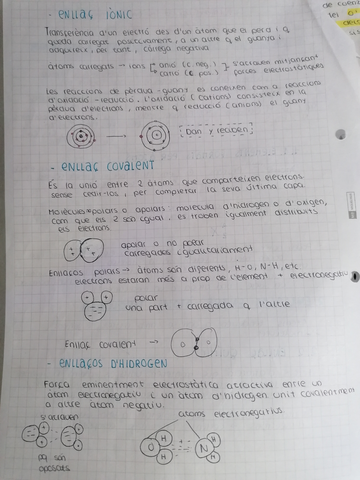 - ENLLAÇ IÒNIC
Transferència d'un electró des d'un àtom que el perd i q
queda carregat positivament, a un altre q el guanya i
adquireix, per tant, càrrega negativa
àtoms carregats → ions anió (c. neg.) s'atrauen mitjançant
catió (c pos) forces electrostàtiques
Les reaccions de pèrdua-guany es coneixen com a reaccions
d'oxidació-reducció. L'oxidació (cations) consisteix en la
pèrdua d'electrons, mentre q reducció (anions) el guany
d'electrons.
Dan y reciben
- ENLLAÇ COVALENT
És la unió entre 2 àtoms que comparteixen electrons
sense cedir-los, per completar la seva última capa.
Molècules polars o apolars molècula d'hidrogen o d'oxigen,
com que els 2 són igual, es troben igualment distribuïts
els electrons.
apolar o no polar
carregades igualitàriament
Enllaços polars → àtoms són diferents, H-O, N-H, etc
electrons estaran més a prop de l'element + electronegatiu
polar
una part + carregada q l'altre
Enllaç covalent →
- ENLLAÇOS D'HIDROGEN
Força eminentment electrostàtica atractiva entre un
àtom electronegatiu i un àtom d'hidrogen unit covalentment
a altre àtom negatiu.
s'atrauen
àtoms electronegatius
O H H N H H
pq són
oposats